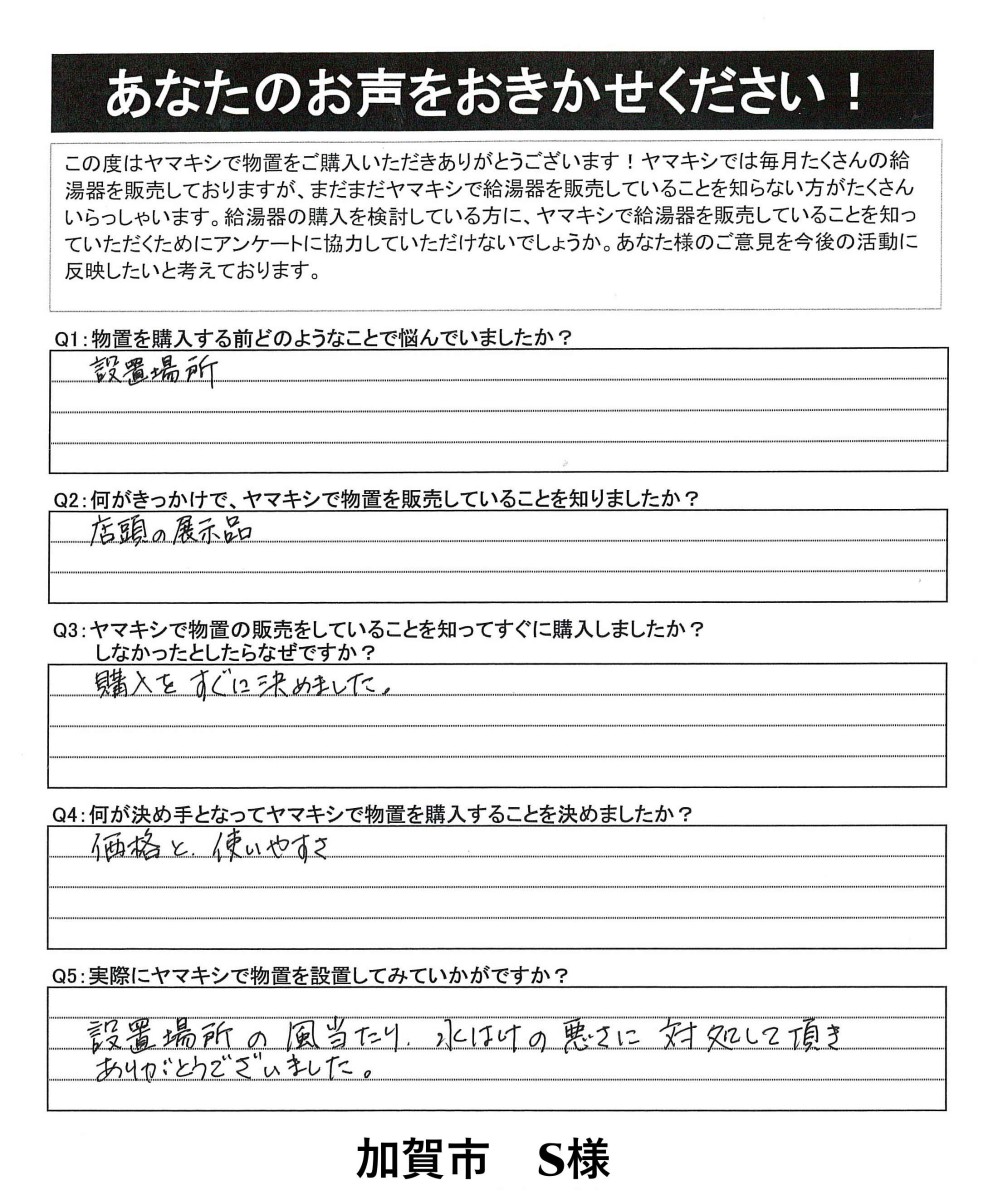 あなたのお声をおきかせください！
この度はヤマキシで物置をご購入いただきありがとうございます！ヤマキシでは毎月たくさんの給
湯器を販売しておりますが、まだまだヤマキシで給湯器を販売していることを知らない方がたくさん
いらっしゃいます。給湯器の購入を検討している方に、ヤマキシで給湯器を販売していることを知っ
ていただくためにアンケートに協力していただけないでしょうか。あなた様のご意見を今後の活動に
反映したいと考えております。
Q1：物置を購入する前どのようなことで悩んでいましたか？
設置場所
Q2：何がきっかけで、ヤマキシで物置を販売していることを知りましたか？
店頭の展示品
Q3：ヤマキシで物置の販売をしていることを知ってすぐに購入しましたか？
しなかったとしたらなぜですか？
購入をすぐに決めました。
Q4：何が決め手となってヤマキシで物置を購入することを決めましたか？
価格と、使いやすさ
Q5：実際にヤマキシで物置を設置してみていかがですか？
設置場所の風当たり、水はけの悪さに対処して頂き
ありがとうございました。
加賀市　S様